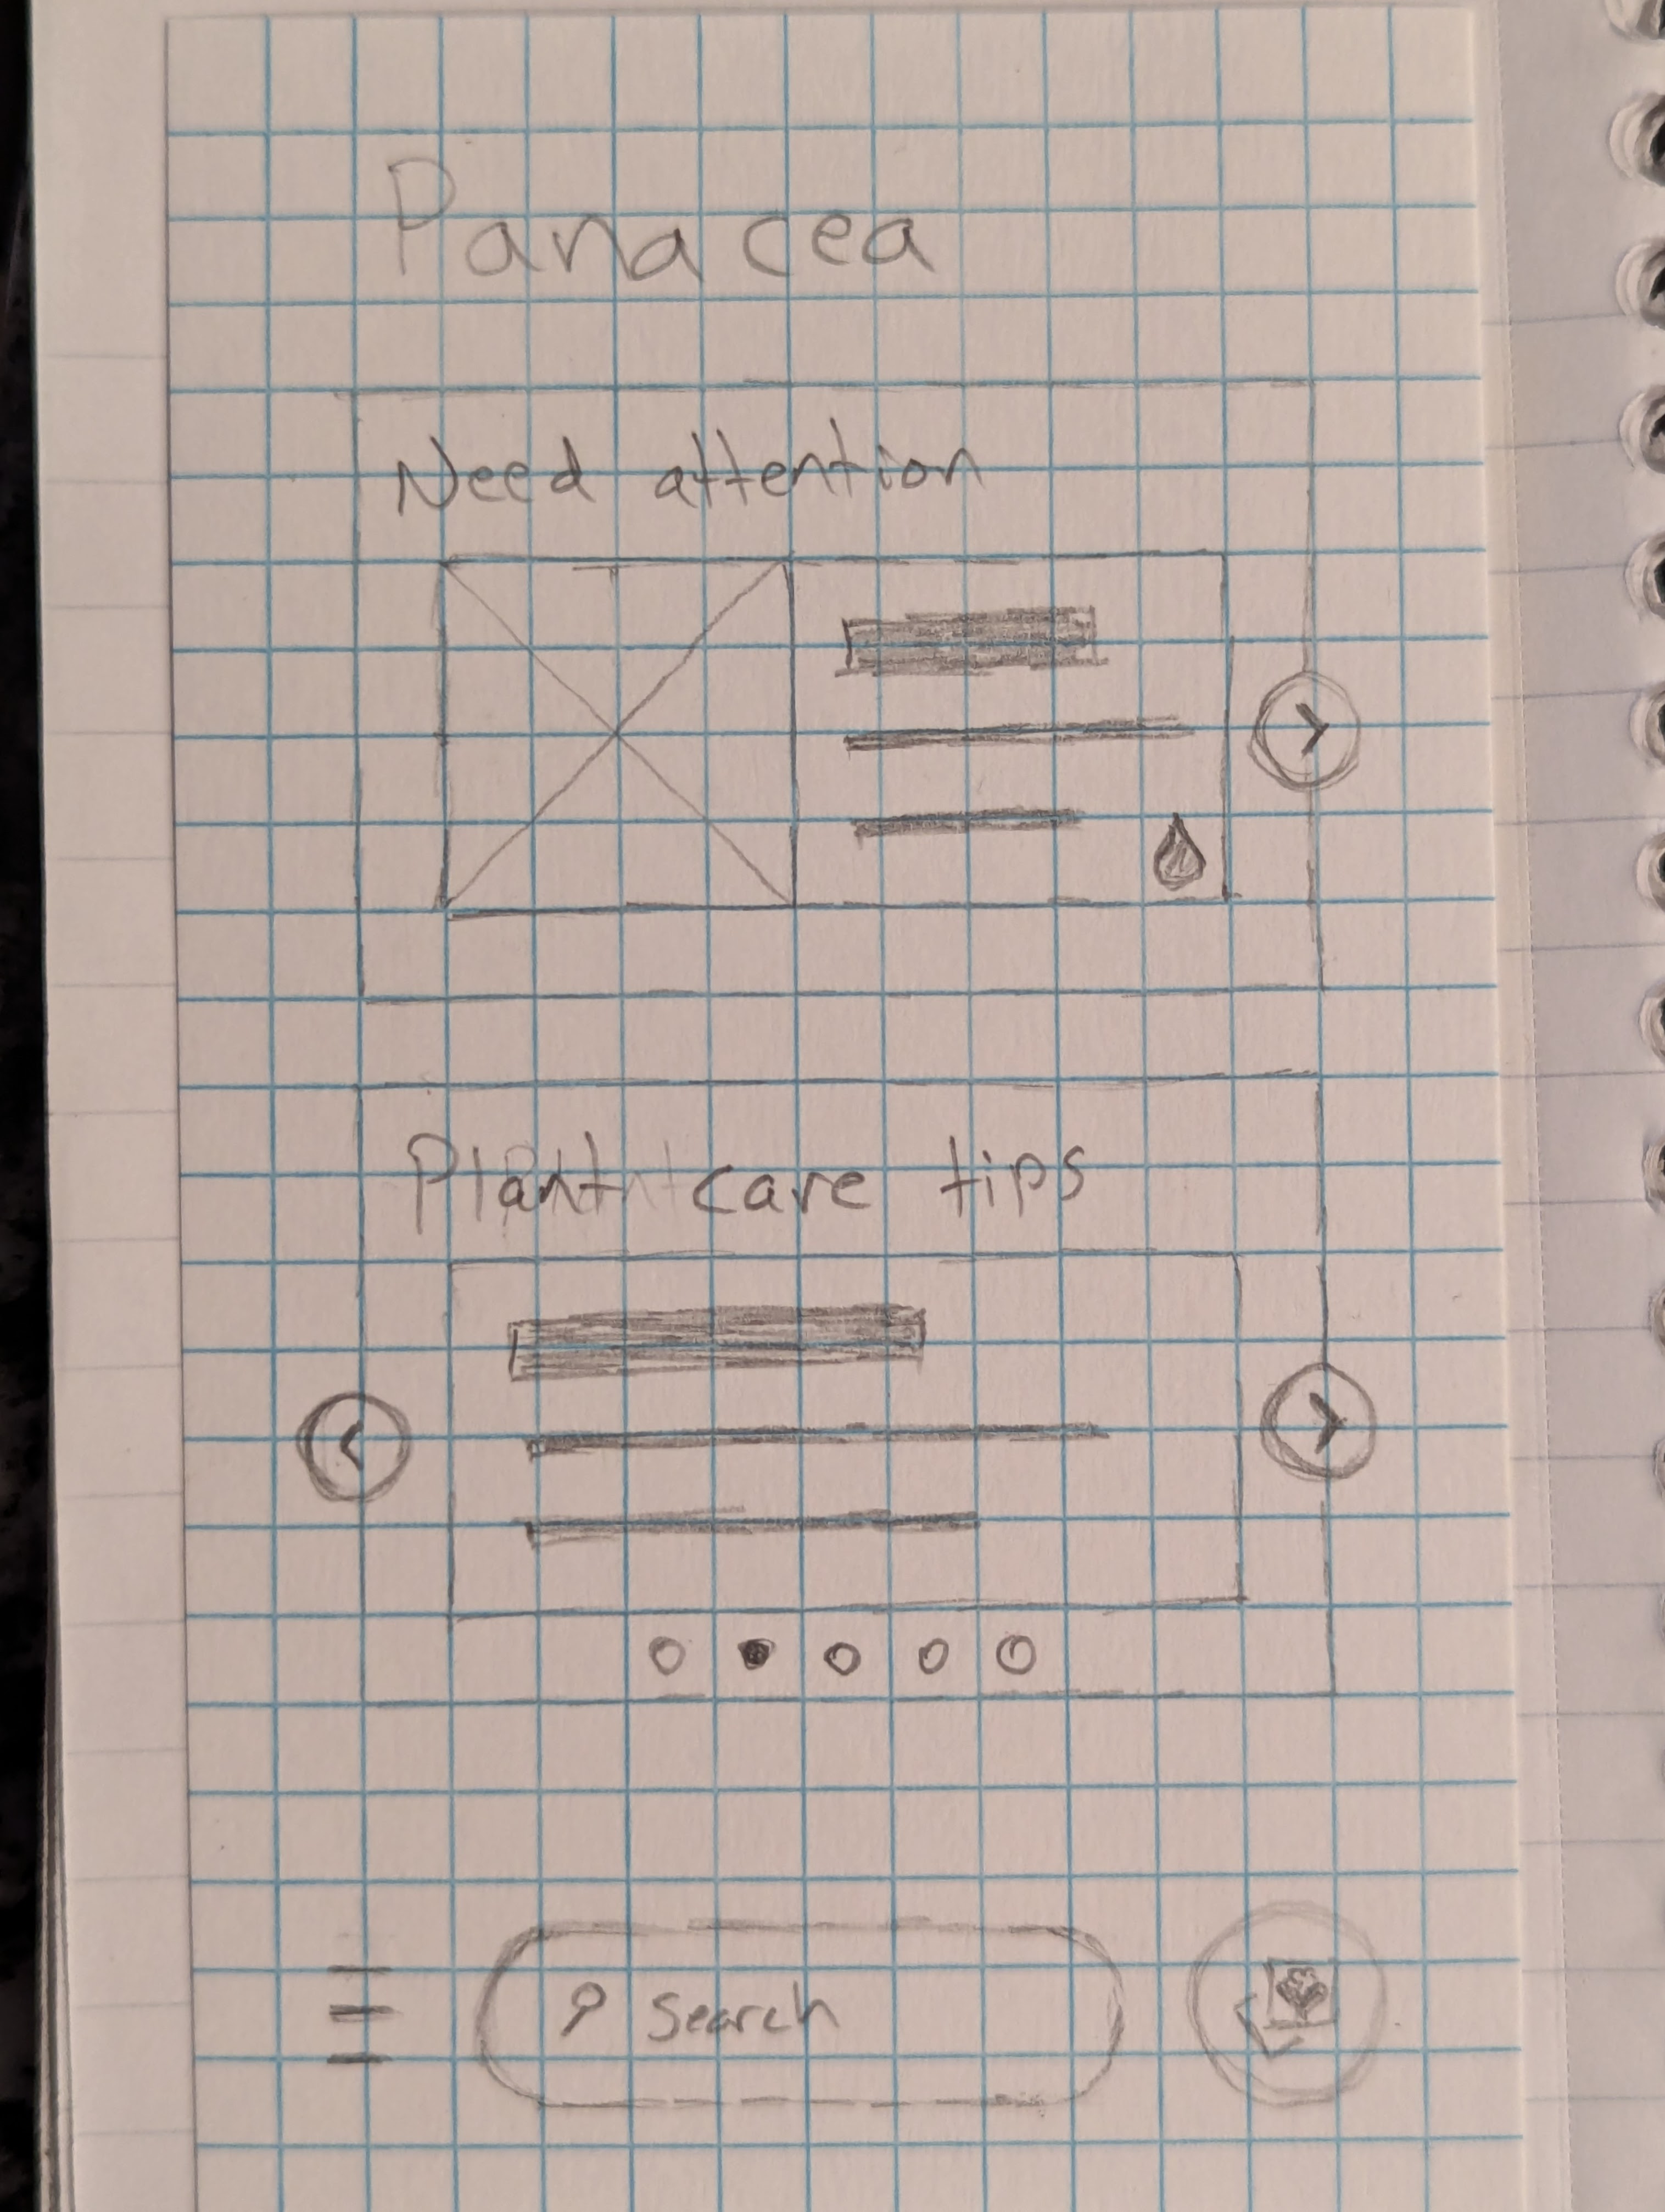 Panacea
Need attention
Plant care tips
Search